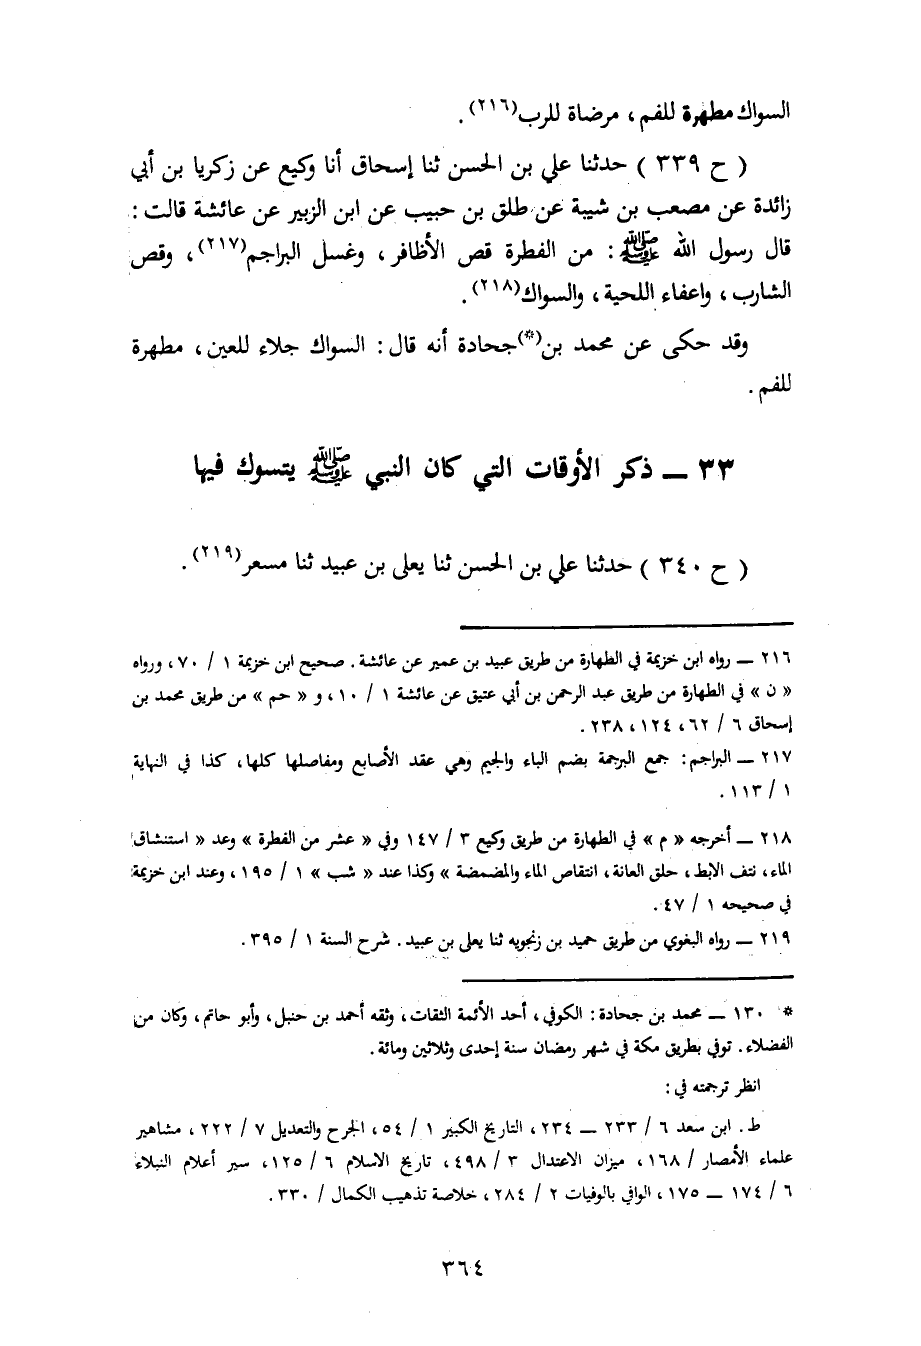 السواك مطهرة للفم ، مرضاة للرب(٢١٦) .
( ح ٣٣٩ ) حدثنا علي بن الحسن ثنا إسحاق أنا وكيع عن زكريا بن أبي
زائدة عن مصعب بن شيبة عن طلق بن حبيب عن ابن الزبير عن عائشة قالت :
قال رسول الله ﷺ : من الفطرة قص الأظافر ، وغسل البراجم(٢١٧) ، وقص
الشارب ، واعفاء اللحية ، والسواك(٢١٨) .
وقد حكى عن محمد بن(*)جحادة أنه قال : السواك جلاء للعين ، مطهرة
للفم .
٣٣ ــ ذكر الأوقات التي كان النبي ﷺ يتسوك فيها
( ح ٣٤٠ ) حدثنا علي بن الحسن ثنا يعلى بن عبيد ثنا مسعر(٢١٩) .
٢١٦ ــ رواه ابن خزيمة في الطهارة من طريق عبيد بن عمير عن عائشة . صحيح ابن خزيمة ١ / ٧٠ ، ورواه
« ن » في الطهارة من طريق عبد الرحمن بن أبي عتيق عن عائشة ١ / ١٠ ، و « حم » من طريق محمد بن
إسحاق ٦ / ٦٢ ، ١٢٤ ، ٢٣٨ .
٢١٧ ــ البراجم : جمع البرجمة بضم الباء والجيم وهي عقد الأصابع ومفاصلها كلها ، كذا في النهاية
١ / ١١٣ .
٢١٨ ــ أخرجه « م » في الطهارة من طريق وكيع ٣ / ١٤٧ وفي « عشر من الفطرة » وعد « استنشاق
الماء ، نتف الابط ، حلق العانة ، انتقاص الماء والمضمضة » وكذا عند « شب » ١ / ١٩٥ ، وعند ابن خزيمة
في صحيحه ١ / ٤٧ .
٢١٩ ــ رواه البغوي من طريق حميد بن زنجويه ثنا يعلى بن عبيد . شرح السنة ١ / ٣٩٥ .
* ١٣٠ ــ محمد بن جحادة : الكوفي ، أحد الأئمة الثقات ، وثقه أحمد بن حنبل ، وأبو حاتم ، وكان من
الفضلاء . توفي بطريق مكة في شهر رمضان سنة إحدى وثلاثين ومائة .
انظر ترجمته في :
ط . ابن سعد ٦ / ٢٣٣ ــ ٢٣٤ ، التاريخ الكبير ١ / ٥٤ ، الجرح والتعديل ٧ / ٢٢٢ ، مشاهير
علماء الأمصار / ١٦٨ ، ميزان الاعتدال ٣ / ٤٩٨ ، تاريخ الاسلام ٦ / ١٢٥ ، سير أعلام النبلاء
٦ / ١٧٤ ــ ١٧٥ ، الوافي بالوفيات ٢ / ٢٨٤ ، خلاصة تذهيب الكمال / ٣٣٠ .
٣٦٤